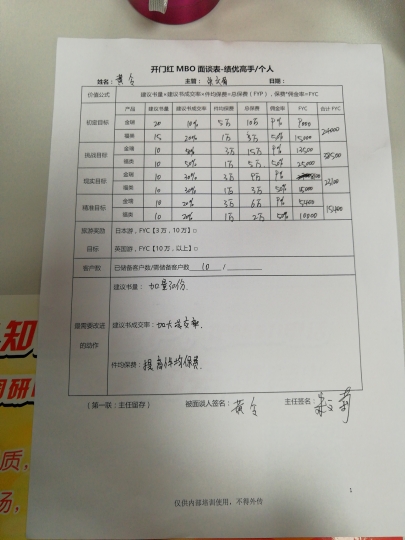 开门红 MBO 面谈表-绩优高手/个人
姓名： 黄 主管： 日期：
价值公式 建议书量*建议书成交率*件均保费=总保费（FYP），保费*佣金率=FYC
产品 建议书量 建议书成交率 件均保费 总保费 佣金率 FYC 合计 FYC
初定目标 金瑞 20 10% 5万 10万 9% 9000 24000
福类 15 20% 1万 3万 50% 15000
挑战目标 金瑞 10 50% 3万 15万 9% 13500 38500
福类 10 50% 1万 5万 50% 25000
现实目标 金瑞 10 30% 3万 9万 9%
福类 10 30% 1万 3万 50% 15000
精准目标 金瑞 10 20% 3万 6万 9% 5400 15400
福类 10 20% 1万 2万 50% 10000
旅游奖励 日本游，FYC【3 万，10 万】□
目标 英国游，FYC【10 万，以上】□
客户数 已储备客户数/需储备客户数 10 /
最需要改进的动作
建议书量： 加量30份
建议书成交率：加大
件均保费：提高件均保费.
（第一联：主任留存） 被面谈人签名： 黄 主任签名：
1
仅供内部培训使用，不得外传
知
质，
场，